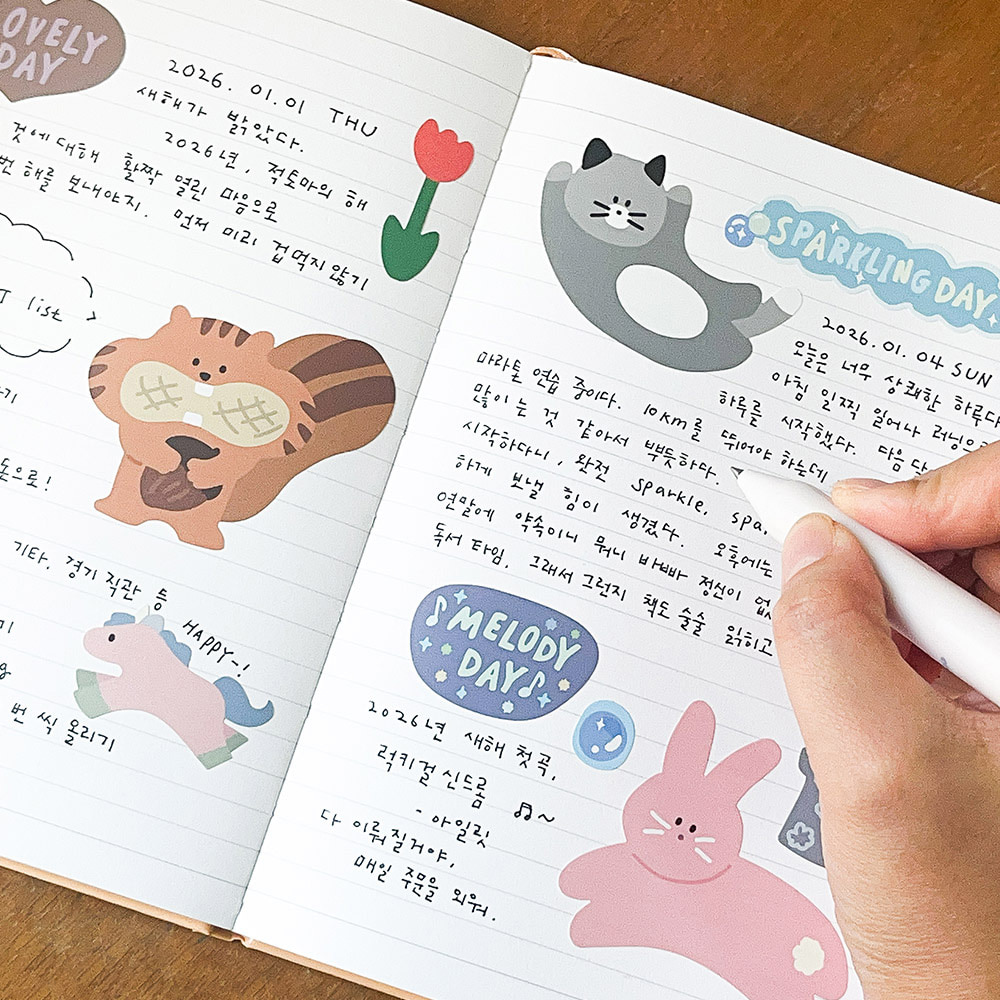 LOVELY
DAY
2026. 01. 01 THU
새해가 밝았다.
2026년, 적토마의 해
것에 대해 활짝 열린 마음으로
번 해를 보내야지. 먼저 미리 겁먹지 않기
list
기타, 경기 직관 등
HAPPY~!
번 씩 올리기
SPARKLING DAY
2026. 01. 04 SUN
오늘은 너무 상쾌한 하루다
아침 일찍 일어나 러닝으로
하루를 시작했다. 다음 달
마라톤 연습 중이다. 10km를 뛰어야 하는데
많이 는 것 같아서 뿌듯하다.
시작하다니, 완전 sparkle, spa
하게 보낼 힘이 생겼다. 오후에는
연말에 약속이니 뭐니 바빠 정신이 없
독서 타임. 그래서 그런지 책도 술술 읽히고
MELODY
DAY
2026년 새해 첫곡,
럭키걸 신드롬
- 아일릿
다 이뤄질거야,
매일 주문을 외워.